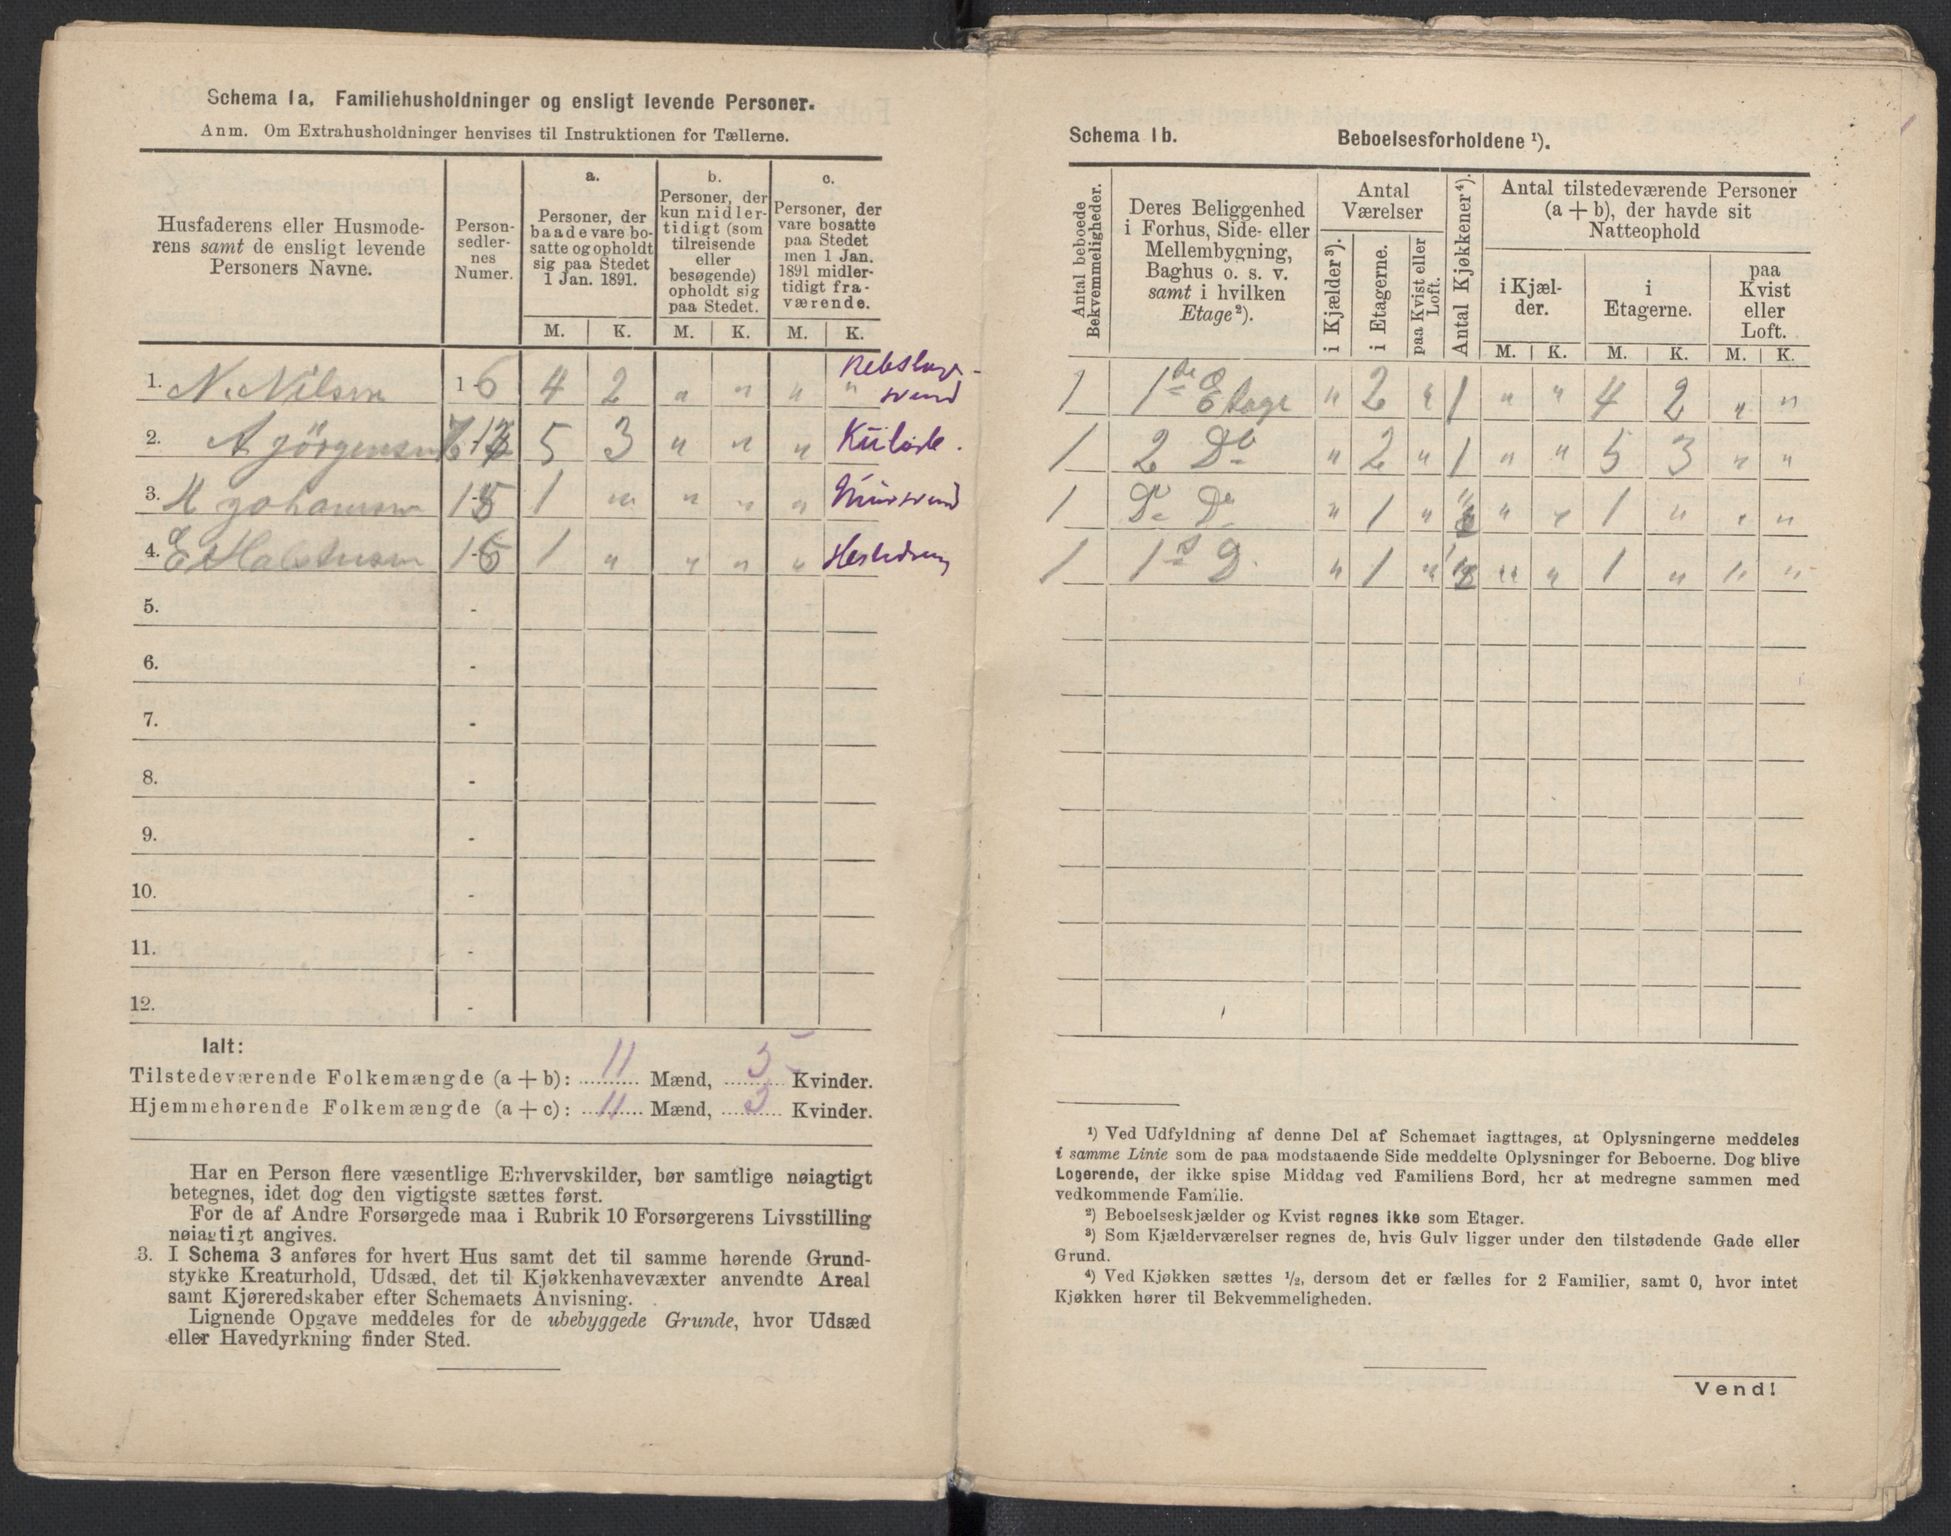 Schema 1a. Familiehusholdninger og ensligt levende Personer.
Anm. Om Extrahusholdninger henvises til Instruktionen for Tællerne.
Husfaderens eller Husmode-
rens samt de ensligt levende
Personers Navne.
Person-
sedler-
nes
Numer.
a.
Personer, der
baade vare bo-
satte og opholdt
sig paa Stedet
1 Jan. 1891.
b.
Personer, der
kun midler-
tidigt (som
tilreisende
eller
besøgende)
opholdt sig
paa Stedet.
c.
Personer, der
vare bosatte
paa Stedet
men 1 Jan.
1891 midler-
tidigt fra-
værende.
M. K. M. K. M. K.
1. N. Nilsen 1-6 4 2 " " " "
2. A Jörgensen 5 3 " " "
3. M Johansen 1 " " " "
4. E 1-6 1 " " " "
5. -
6. -
7. -
8. -
9. -
10. -
11. -
12. -
Ialt:
Tilstedeværende Folkemængde (a + b): 11 Mænd, 5 Kvinder.
Hjemmehørende Folkemængde (a + c): 11 Mænd, Kvinder.
Har en Person flere væsentlige Erhvervskilder, bør samtlige nøiagtigt
betegnes, idet dog den vigtigste sættes først.
For de af Andre Forsørgede maa i Rubrik 10 Forsørgerens Livsstilling
nøiagtigt angives.
3. I Schema 3 anføres for hvert Hus samt det til samme hørende Grund-
stykke Kreaturhold, Udsæd, det til Kjøkkenhavevæxter anvendte Areal
samt Kjøreredskaber efter Schemaets Anvisning.
Lignende Opgave meddeles for de ubebyggede Grunde, hvor Udsæd
eller Havedyrkning finder Sted.
Schema 1b. Beboelsesforholdene ¹).
Antal beboede
Bekvemmeligheder.
Deres Beliggenhed
i Forhus, Side- eller
Mellembygning,
Baghus o. s. v.
samt i hvilken
Etage²).
Antal
Værelser
i Kjælder³).
i Etagerne.
paa Kvist eller
Loft.
Antal Kjøkkener⁴).
Antal tilstedeværende Personer
(a + b), der havde sit
Natteophold
i Kjæl-
der.
i
Etagerne.
paa
Kvist
eller
Loft.
M. K. M. K. M. K.
1 1de Etage " 2 " 1 " " 4 2 " "
1 2 Do " 2 " 1 " " 5 3 " "
1 Do Do " 1 " " " 1 " " "
1 1 D. " 1 " " " 1 " " "
¹) Ved Udfyldning af denne Del af Schemaet iagttages, at Oplysningerne meddeles
i samme Linie som de paa modstaaende Side meddelte Oplysninger for Beboerne. Dog blive
Logerende, der ikke spise Middag ved Familiens Bord, her at medregne sammen med
vedkommende Familie.
²) Beboelseskjælder og Kvist regnes ikke som Etager.
³) Som Kjælderværelser regnes de, hvis Gulv ligger under den tilstødende Gade eller
Grund.
⁴) Ved Kjøkken sættes ½, dersom det er fælles for 2 Familier, samt 0, hvor intet
Kjøkken hører til Bekvemmeligheden.
Vend!